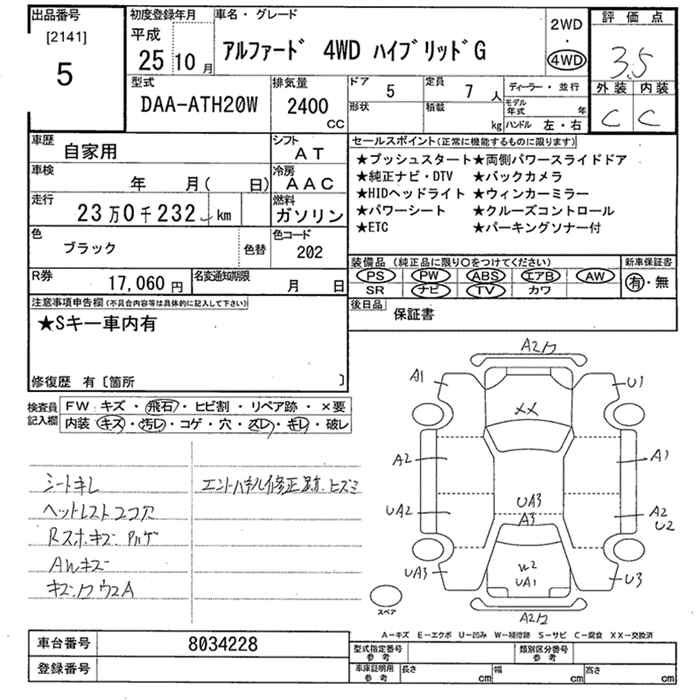 出品番号 初度登録年月 車名・グレード 2WD 評価点
[2141] 平成
5 25年10月 アルファード 4WD ハイブリッドG ・ 4WD 3.5
型式 排気量 ドア 5 定員 7人 ディーラー・並行 外装 内装
DAA-ATH20W 2400CC 形状 積載 kg モデル年式 年 C C
ハンドル 左・右
車歴 自家用 シフト AT セールスポイント(正常に機能するものに限ります)
★プッシュスタート★両側パワースライドドア
車検 年 月( 日) 冷房 AAC ★純正ナビ・DTV ★バックカメラ
★HIDヘッドライト★ウィンカーミラー
走行 23万0千232 km 燃料 ガソリン ★パワーシート ★クルーズコントロール
★ETC ★パーキングソナー付
色 ブラック 色替 色コード 202
装備品(純正品に限り○をつけてください) 新車保証書
R券 17,060円 名変通知期限 月 日 PS PW ABS エアB AW 有・無
SR ナビ TV カワ
注意事項申告欄(不具合内容等は具体的に記入して下さい) 後日品 保証書
★Sキー車内有
修復歴 有〔箇所 〕
検査員記入欄 FW キズ・飛石・ヒビ割・リペア跡・×要
内装 キズ・汚レ・コゲ・穴・スレ・キレ・破レ
シートキレ エンドパネル修正跡、ヒズミ
ヘッドレストココ穴
Rスポキズ
AWキズ
A2
A1 U1
XX
A2 A1
UA3
UA2 A3 A2
U2
W2
UA3 UA1 U3
A2
スペア
A-キズ E-エクボ U-凹み W-補修跡 S-サビ C-腐食 XX-交換済
車台番号 8034228 型式指定番号 参考 類別区分番号 参考
登録番号 車庫証明用 参考 長さ cm 幅 cm 高さ cm